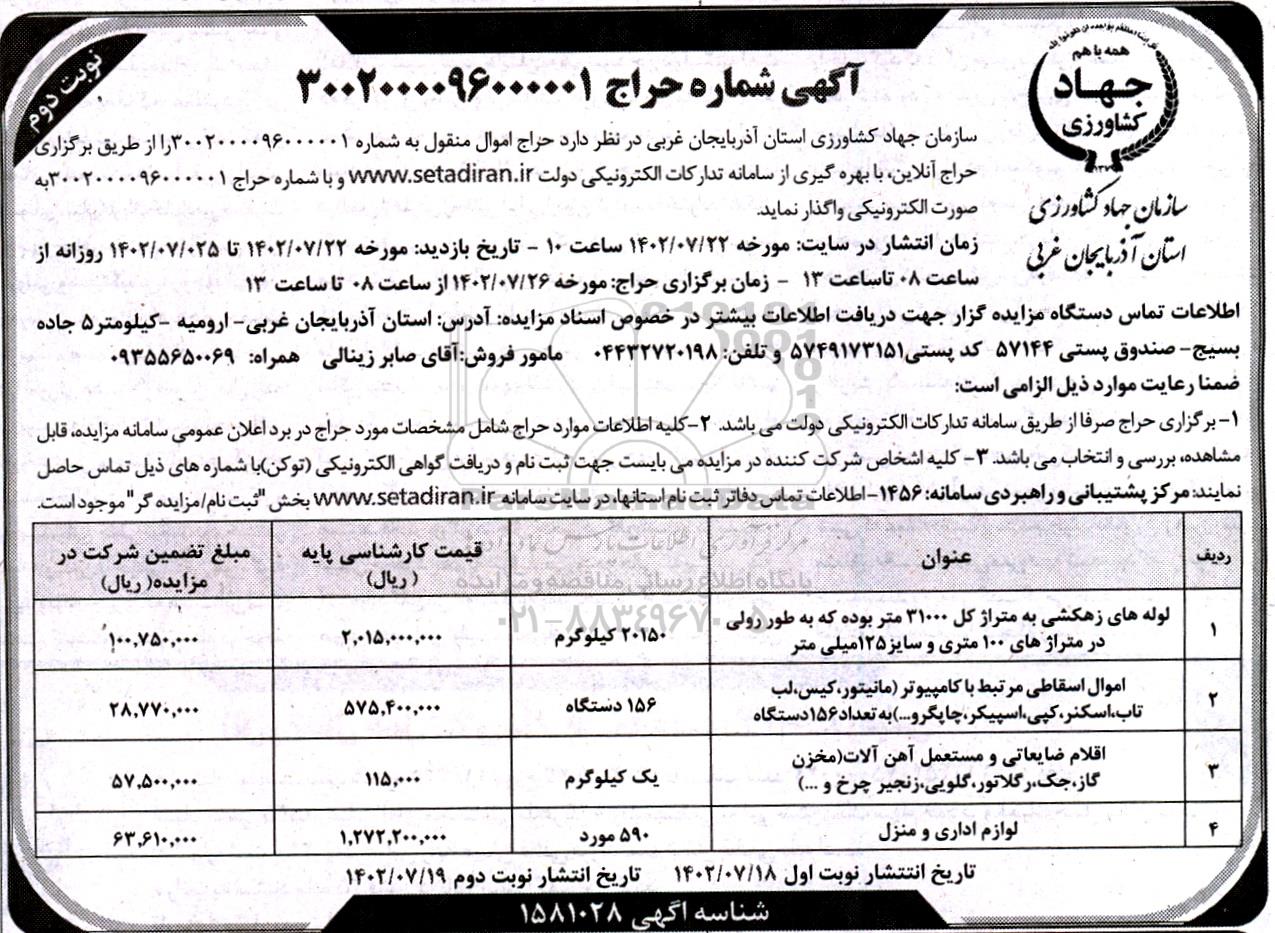 نوبت دوم
همه با هم
جهاد
کشاورزی
سازمان جهاد کشاورزی
استان آذربایجان غربی
آگهی شماره حراج ۳۰۰۲۰۰۰۰۹۶۰۰۰۰۰۱
سازمان جهاد کشاورزی استان آذربایجان غربی در نظر دارد حراج اموال منقول به شماره ۳۰۰۲۰۰۰۰۹۶۰۰۰۰۰۱را از طریق برگزاری
حراج آنلاین، با بهره گیری از سامانه تدارکات الکترونیکی دولت www.setadiran.ir و با شماره حراج ۳۰۰۲۰۰۰۰۹۶۰۰۰۰۰۱به
صورت الکترونیکی واگذار نماید.
زمان انتشار در سایت: مورخه ۱۴۰۲/۰۷/۲۲ ساعت ۱۰ - تاریخ بازدید: مورخه ۱۴۰۲/۰۷/۲۲ تا ۱۴۰۲/۰۷/۰۲۵ روزانه از
ساعت ۰۸ تاساعت ۱۳ - زمان برگزاری حراج: مورخه ۱۴۰۲/۰۷/۲۶ از ساعت ۰۸ تا ساعت ۱۳
اطلاعات تماس دستگاه مزایده گزار جهت دریافت اطلاعات بیشتر در خصوص اسناد مزایده: آدرس: استان آذربایجان غربی- ارومیه -کیلومتر۵ جاده
بسیج- صندوق پستی ۵۷۱۴۴ کد پستی۵۷۴۹۱۷۳۱۵۱ و تلفن: ۰۴۴۳۲۷۲۰۱۹۸ مامور فروش:آقای صابر زینالی همراه: ۰۹۳۵۵۶۵۰۰۶۹
ضمنا رعایت موارد ذیل الزامی است:
۱- برگزاری حراج صرفا از طریق سامانه تدارکات الکترونیکی دولت می باشد. ۲-کلیه اطلاعات موارد حراج شامل مشخصات مورد حراج در برد اعلان عمومی سامانه مزایده، قابل
مشاهده، بررسی و انتخاب می باشد. ۳- کلیه اشخاص شرکت کننده در مزایده می بایست جهت ثبت نام و دریافت گواهی الکترونیکی (توکن)با شماره های ذیل تماس حاصل
نمایند: مرکز پشتیبانی و راهبردی سامانه: ۱۴۵۶-اطلاعات تماس دفاتر ثبت نام استانها، در سایت سامانه www.setadiran.ir بخش "ثبت نام/مزایده گر" موجود است.
ردیف عنوان قیمت کارشناسی پایه (ریال) مبلغ تضمین شرکت در مزایده(ریال)
۱ لوله های زهکشی به متراژ کل ۳۱۰۰۰ متر بوده که به طور رولی
در متراژ های ۱۰۰ متری و سایز۱۲۵میلی متر ۲۰۱۵۰ کیلوگرم ۲,۰۱۵,۰۰۰,۰۰۰ ۱۰۰,۷۵۰,۰۰۰
۲ اموال اسقاطی مرتبط با کامپیوتر (مانیتور،کیس،لب
تاب،اسکنر،کپی،اسپیکر،چاپگرو...)به تعداد۱۵۶دستگاه ۱۵۶ دستگاه ۵۷۵,۴۰۰,۰۰۰ ۲۸,۷۷۰,۰۰۰
۳ اقلام ضایعاتی و مستعمل آهن آلات(مخزن
گاز،جک،رگلاتور،گلویی،زنجیر چرخ و ...) یک کیلوگرم ۱۱۵,۰۰۰ ۵۷,۵۰۰,۰۰۰
۴ لوازم اداری و منزل ۵۹۰ مورد ۱,۲۷۲,۲۰۰,۰۰۰ ۶۳,۶۱۰,۰۰۰
تاریخ انتتشار نوبت اول ۱۴۰۲/۰۷/۱۸ تاریخ انتشار نوبت دوم ۱۴۰۲/۰۷/۱۹
شناسه اگهی ۱۵۸۱۰۲۸
ParsNamadData
پایگاه اطلاع رسانی مناقصه و مزایده
۰۲۱-۸۸۳۴۹۶۷۰-۵